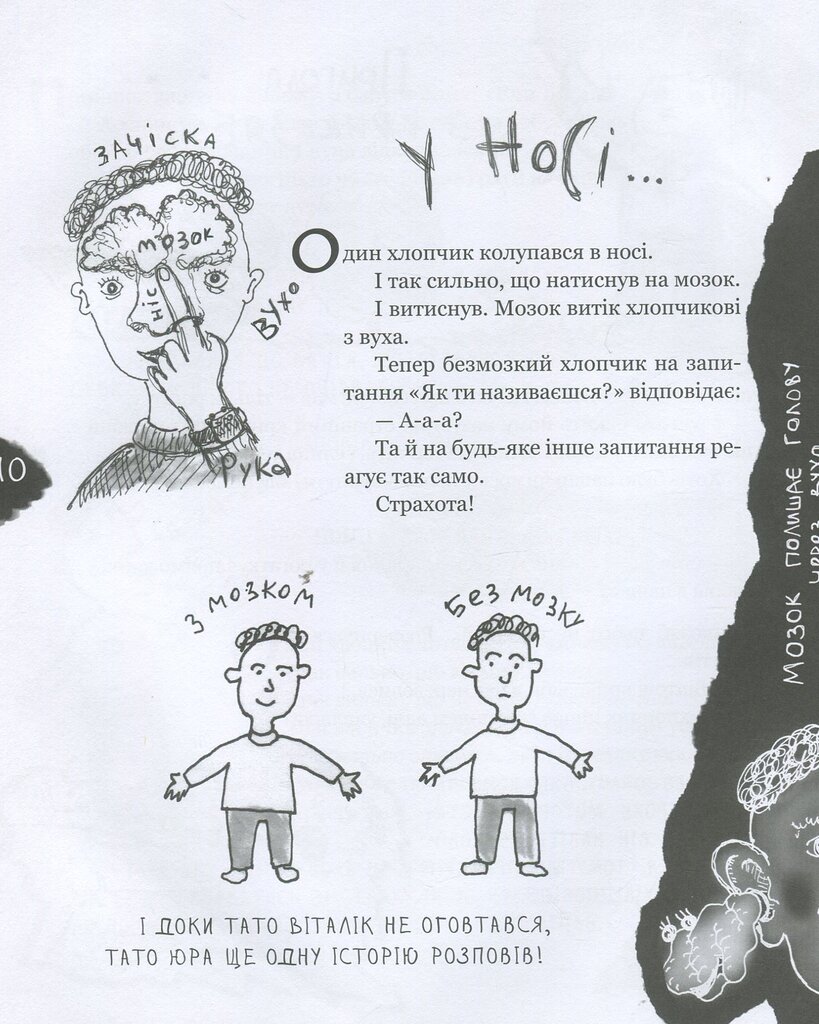 У НОСІ...
ЗАЧІСКА
МОЗОК
НІС
ВУХО
РУКА
Один хлопчик колупався в носі.
І так сильно, що натиснув на мозок.
І витиснув. Мозок витік хлопчикові
з вуха.
Тепер безмозкий хлопчик на запи-
тання «Як ти називаєшся?» відповідає:
— А-а-а?
Та й на будь-яке інше запитання ре-
агує так само.
Страхота!
10
З МОЗКОМ
БЕЗ МОЗКУ
І ДОКИ ТАТО ВІТАЛІК НЕ ОГОВТАВСЯ,
ТАТО ЮРА ЩЕ ОДНУ ІСТОРІЮ РОЗПОВІВ!
МОЗОК ПОЛИШАЄ ГОЛОВУ
ЧЕРЕЗ ВУХО